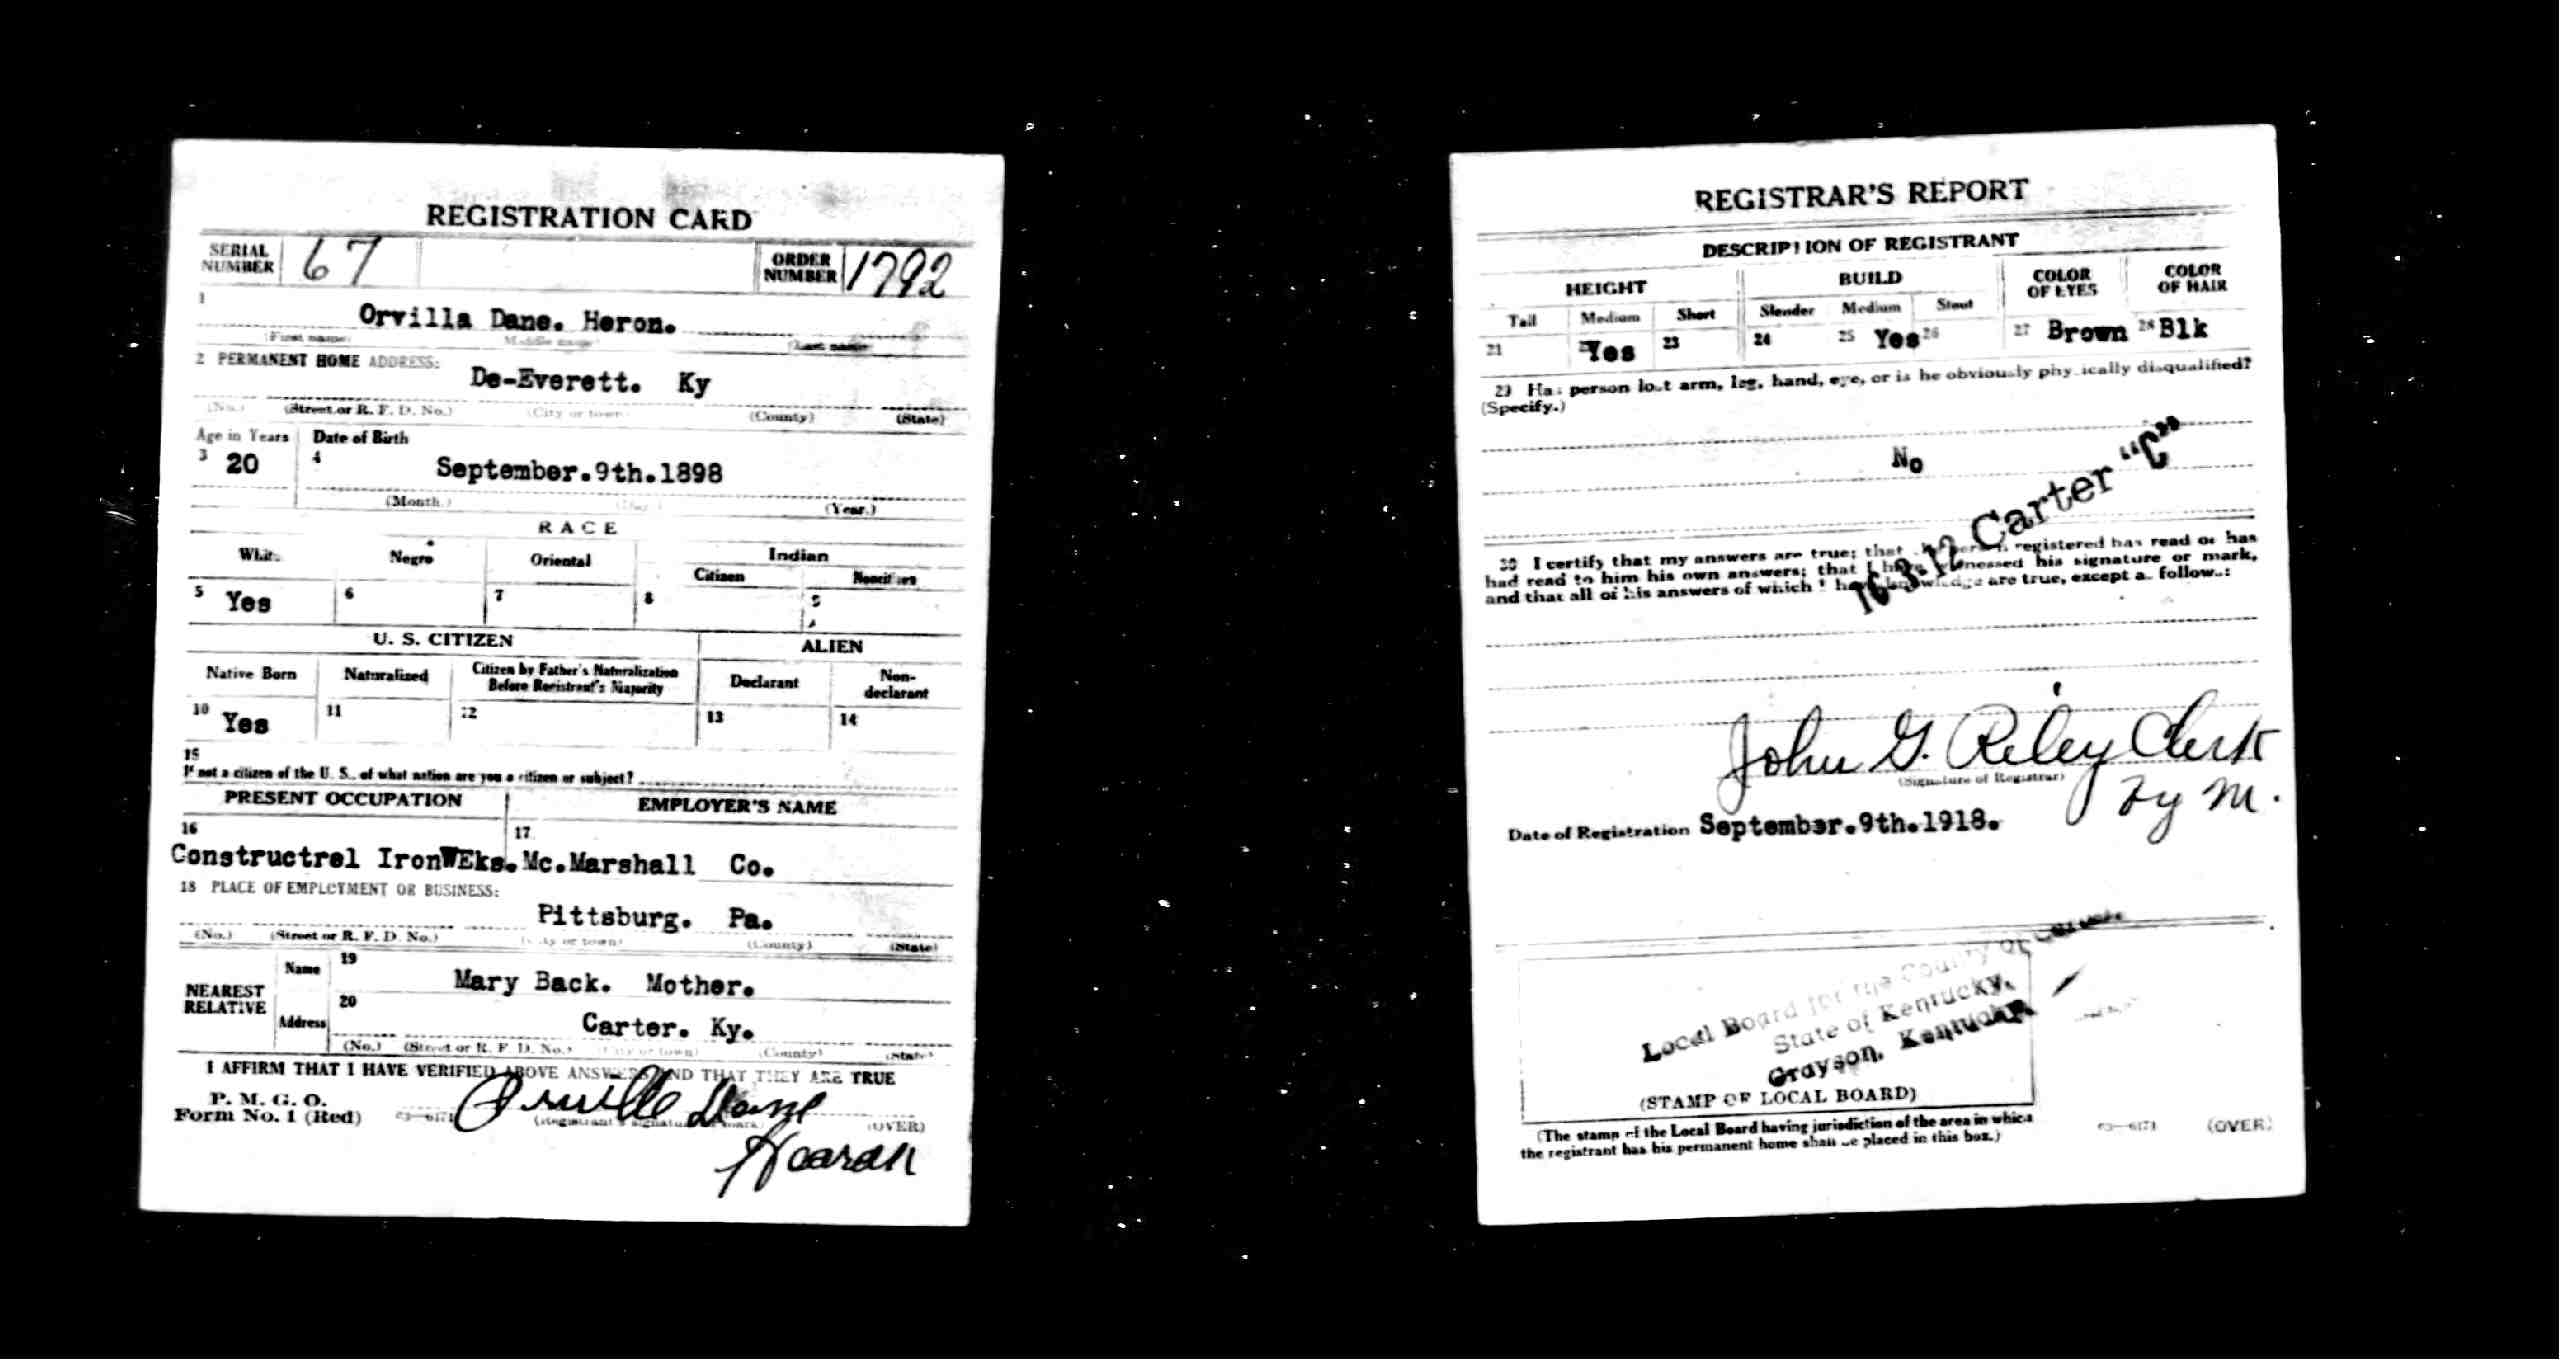 REGISTRATION CARD
SERIAL NUMBER 67 ORDER NUMBER 1792
1 Orvilla Dane. Heron.
(First name) (Middle name) (Last name)
2 PERMANENT HOME ADDRESS:
De-Everett. Ky
(No.) (Street or R. F. D. No.) (City or town) (County) (State)
Age in Years Date of Birth
3 20 4 September.9th.1898
(Month.) (Day.) (Year.)
RACE
White Negro Oriental Indian
Citizen Noncitizen
5 Yes 6 7 8 9
U. S. CITIZEN ALIEN
Native Born Naturalized Citizen by Father's Naturalization Before Registrant's Majority Declarant Non-declarant
10 Yes 11 12 13 14
15
If not a citizen of the U. S., of what nation are you a citizen or subject?
PRESENT OCCUPATION EMPLOYER'S NAME
16 17
Constructrel IronWEks. Mc.Marshall Co.
18 PLACE OF EMPLOYMENT OR BUSINESS:
Pittsburg. Pa.
(No.) (Street or R. F. D. No.) (City or town) (County) (State)
NEAREST RELATIVE
Name 19 Mary Back. Mother.
Address 20 Carter. Ky.
(No.) (Street or R. F. D. No.) (City or town) (County) (State)
I AFFIRM THAT I HAVE VERIFIED ABOVE ANSWERS AND THAT THEY ARE TRUE
P. M. G. O.
Form No. 1 (Red) 03—6171 Orville Dane
(Registrant's signature or mark) (OVER)
REGISTRAR'S REPORT
DESCRIPTION OF REGISTRANT
HEIGHT BUILD COLOR OF EYES COLOR OF HAIR
Tall Medium Short Slender Medium Stout
21 22 Yes 23 24 25 Yes 26 27 Brown 28 Blk
29 Has person lost arm, leg, hand, eye, or is he obviously physically disqualified?
(Specify.)
No
16-3-12 Carter "C"
30 I certify that my answers are true; that the person registered has read or has
had read to him his own answers; that I have witnessed his signature or mark,
and that all of his answers of which I have knowledge are true, except as follows:
John G. Riley Clerk
(Signature of Registrar)
M.
Date of Registration September.9th.1918.
Local Board for the County of Carter
State of Kentucky,
Grayson, Kentucky
(STAMP OF LOCAL BOARD)
(The stamp of the Local Board having jurisdiction of the area in which
the registrant has his permanent home shall be placed in this box.)
03—6171 (OVER)